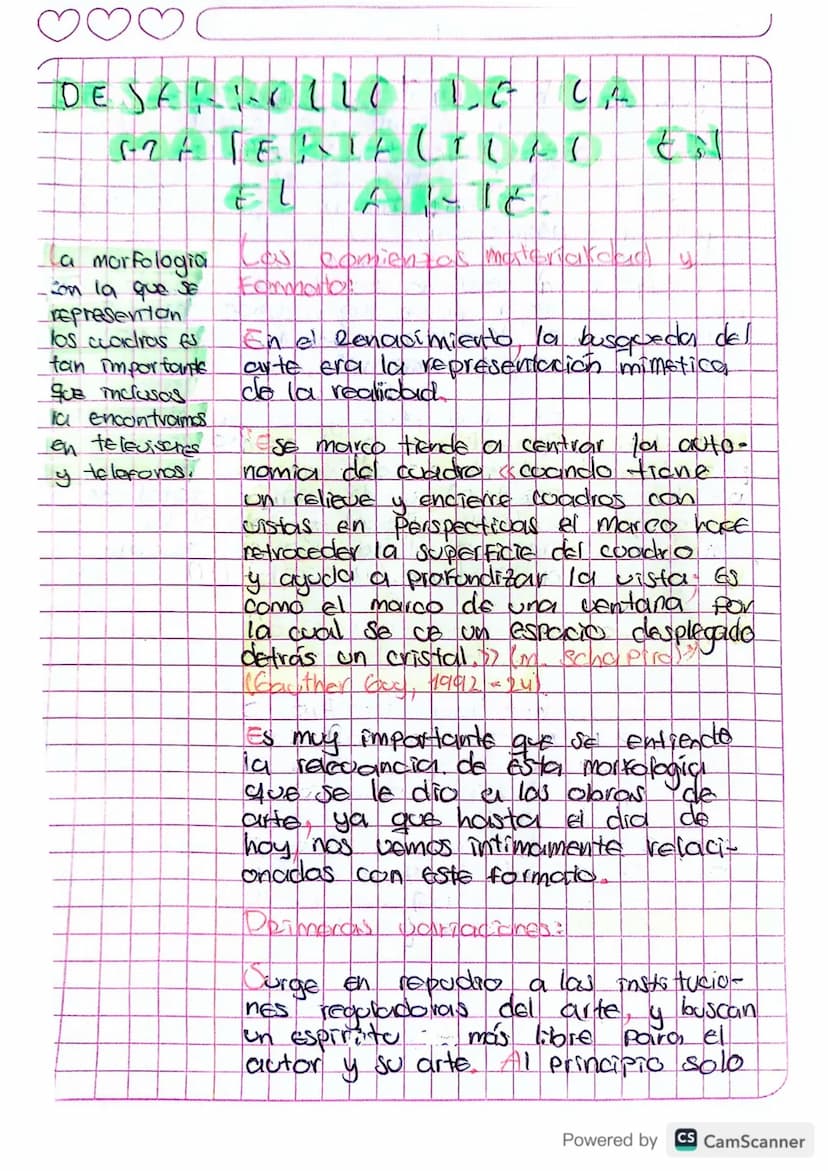 DESARROLLO DE LA
MATERIALIDAD EN
EL ARTE.
La morfologia
con la que se
representan
los cuadros es
tan importante
que inclusos
la encontramos
en televisores
y telefonos.
Los comienzos materialidad y
Formato:
En el Renacimiento, la busqueda del
arte era la representación mimetica
de la realidad.
"Ese marco tiende a centrar la auto-
nomia del cuadro «cuando tiene
un relieve y encierre cuadros con
vistas en perspecticas el marco hace
retroceder la superficie del cuadro
y ayuda a profundizar la vista. Es
como el marco de una ventana por
la cual se ce un espacio desplegado
detrás un cristal.» (m. schapiro)"
(Gauther Guy, 1992-24)
Es muy importante que se entienda
la relevancia de esta morfologia
que se le dio a las obras de
arte, ya que hasta el dia de
hoy, nos vemos intimamente relaci-
onadas con este formato.
Primeras variaciones:
Surge en repudio a las institucio-
nes reguladoras del arte, y buscan
un espiritu más libre para el
autor y su arte. Al principio solo
Powered by CS CamScanner